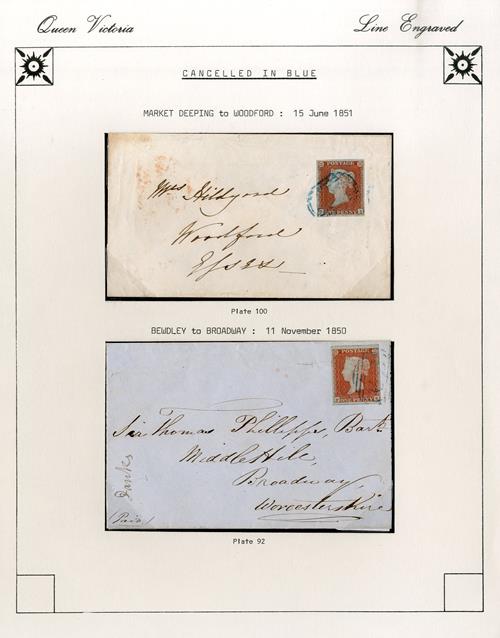 Queen Victoria
Line Engraved
CANCELLED IN BLUE
MARKET DEEPING to WOODFORD : 15 June 1851
POSTAGE
ONE PENNY
Mrs Hildyard
Woodford
Essex
Plate 100
BEWDLEY to BROADWAY : 11 November 1850
POSTAGE
ONE PENNY
Sir Thomas Phillipps, Bart.
Middle Hill,
Broadway,
Worcestershire
(Paid)
Plate 92